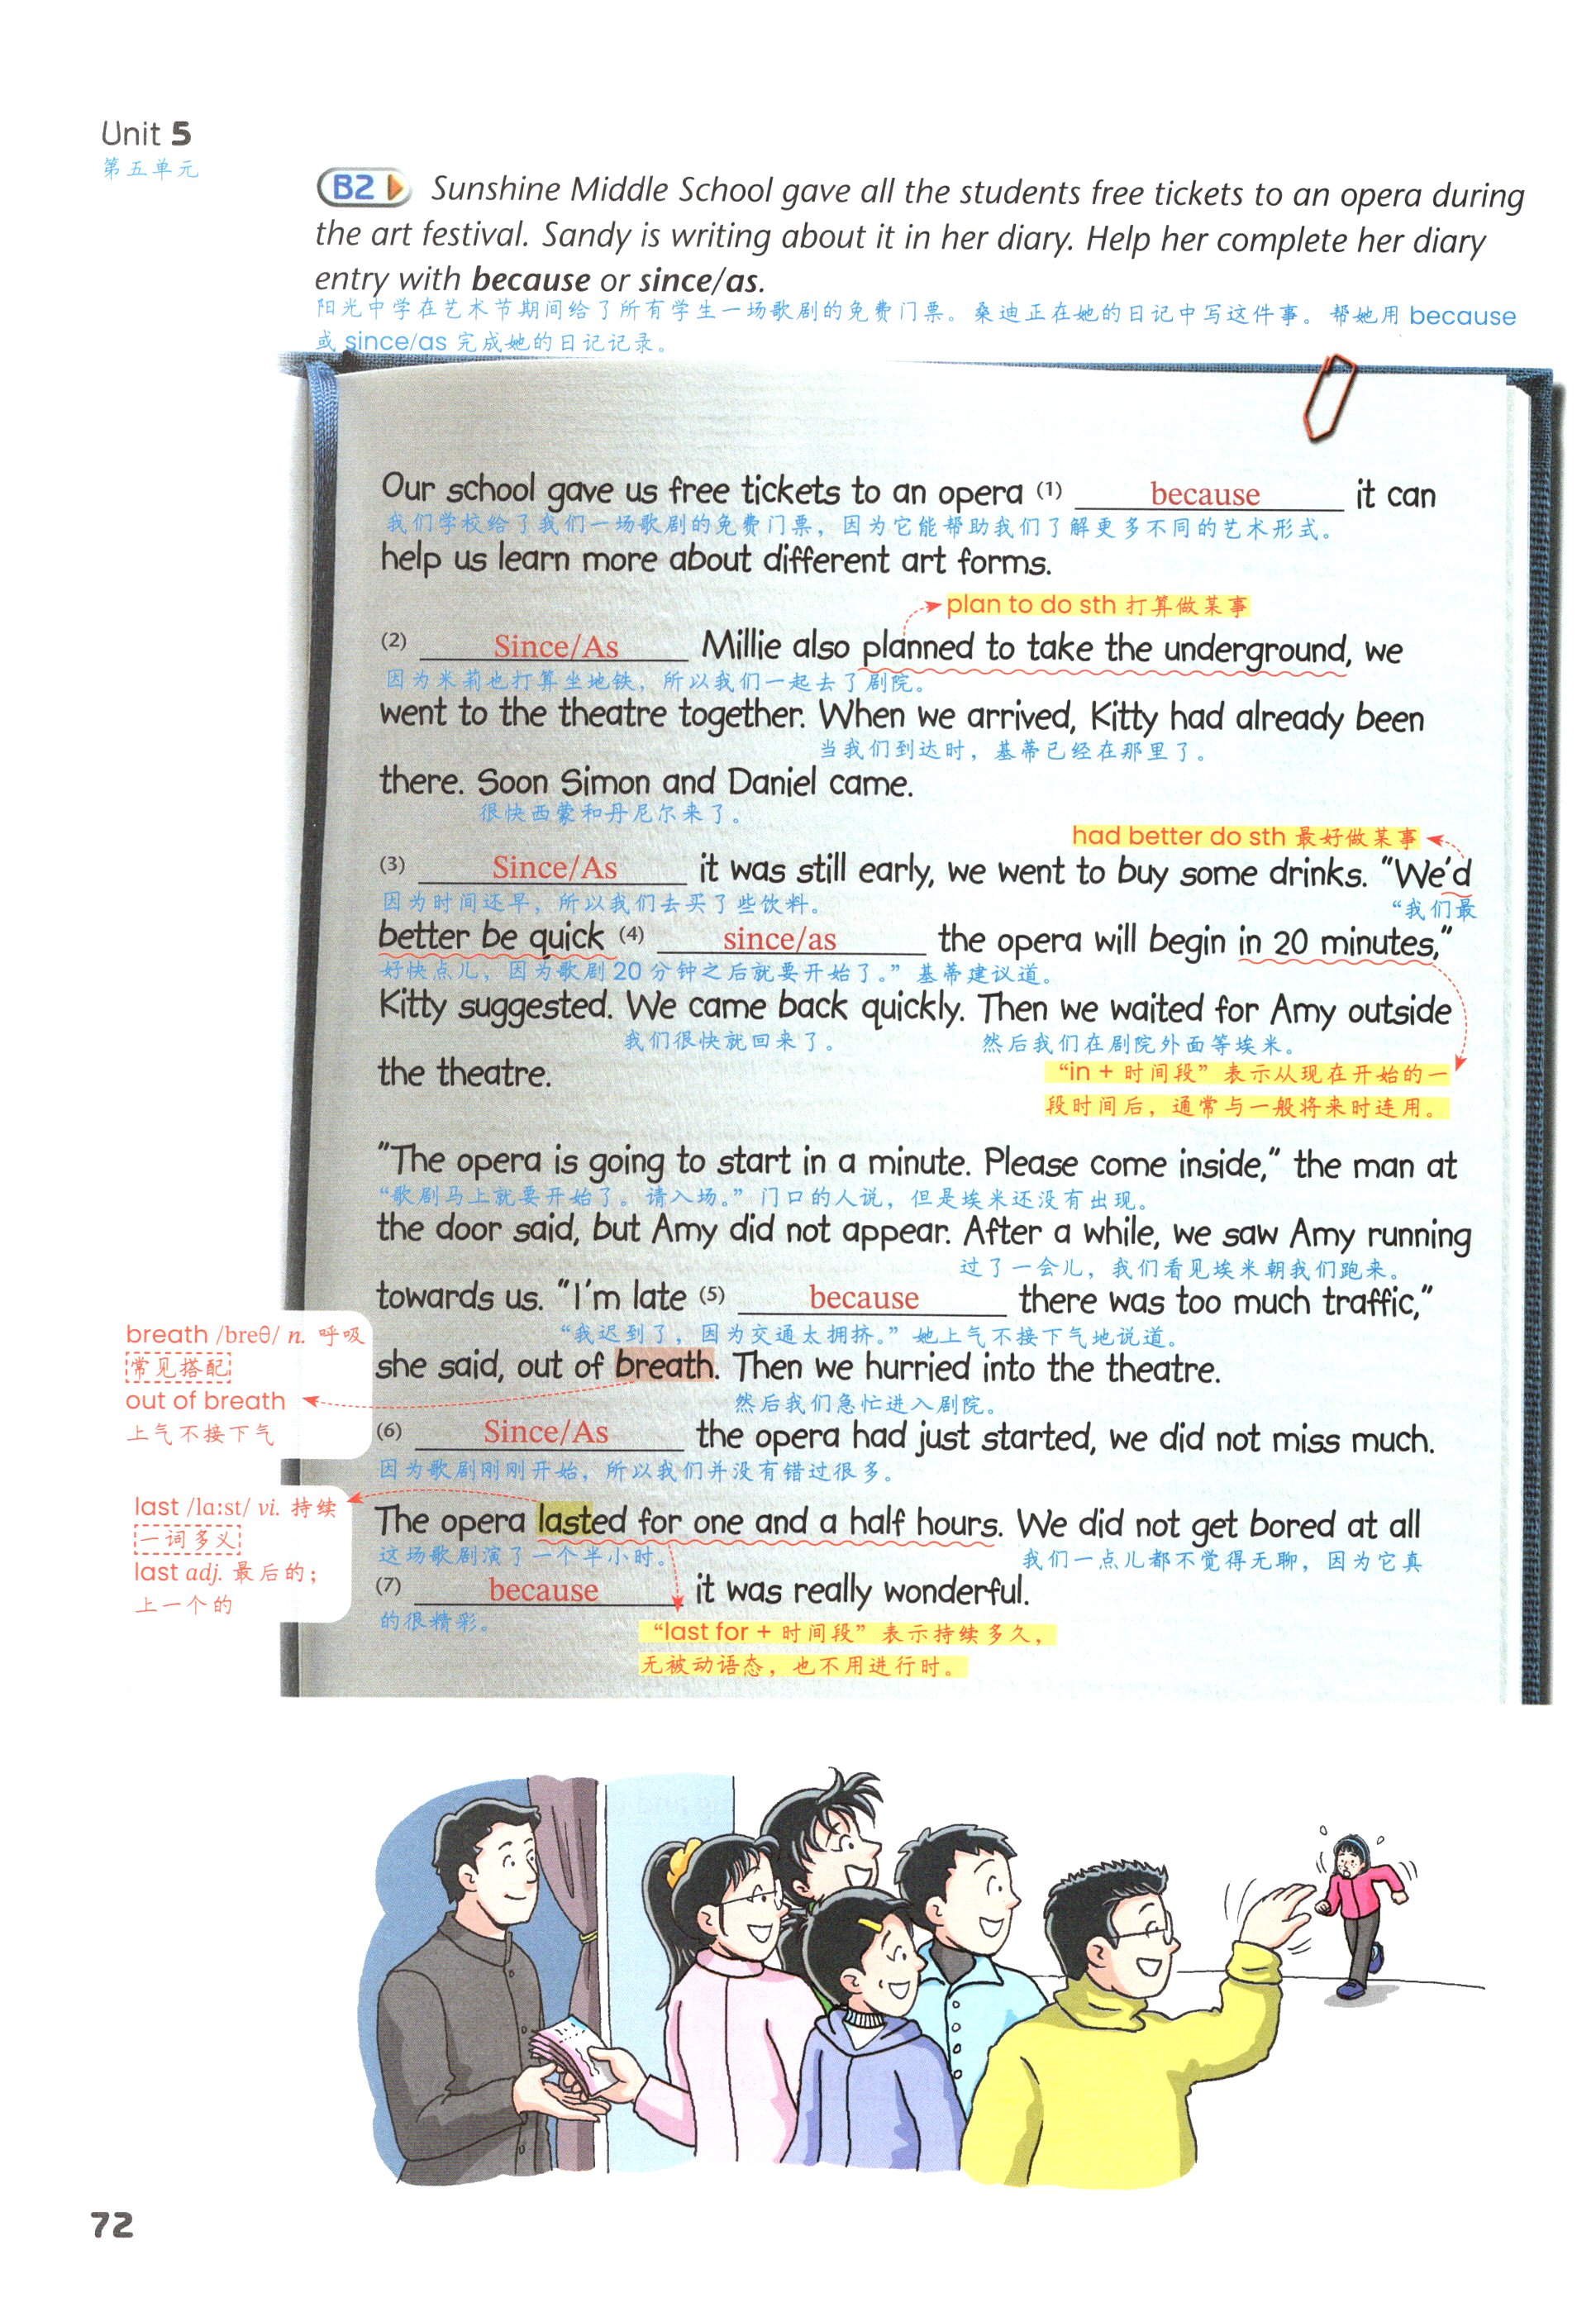 Unit 5
第五单元
B2 Sunshine Middle School gave all the students free tickets to an opera during
the art festival. Sandy is writing about it in her diary. Help her complete her diary
entry with because or since/as.
阳光中学在艺术节期间给了所有学生一场歌剧的免费门票。桑迪正在她的日记中写这件事。帮她用 because
或 since/as 完成她的日记记录。
Our school gave us free tickets to an opera (1) because it can
我们学校给了我们一场歌剧的免费门票，因为它能帮助我们了解更多不同的艺术形式。
help us learn more about different art forms.
plan to do sth 打算做某事
(2) Since/As Millie also planned to take the underground, we
因为米莉也打算坐地铁，所以我们一起去了剧院。
went to the theatre together. When we arrived, Kitty had already been
当我们到达时，基蒂已经在那里了。
there. Soon Simon and Daniel came.
很快西蒙和丹尼尔来了。
had better do sth 最好做某事
(3) Since/As it was still early, we went to buy some drinks. “We’d
因为时间还早，所以我们去买了些饮料。 “我们最
better be quick (4) since/as the opera will begin in 20 minutes,”
好快点儿，因为歌剧20分钟之后就要开始了。”基蒂建议道。
Kitty suggested. We came back quickly. Then we waited for Amy outside
我们很快就回来了。 然后我们在剧院外面等埃米。
the theatre.
“in + 时间段”表示从现在开始的一
段时间后，通常与一般将来时连用。
“The opera is going to start in a minute. Please come inside,” the man at
“歌剧马上就要开始了。请入场。”门口的人说，但是埃米还没有出现。
the door said, but Amy did not appear. After a while, we saw Amy running
过了一会儿，我们看见埃米朝我们跑来。
towards us. “I’m late (5) because there was too much traffic,”
“我迟到了，因为交通太拥挤。”她上气不接下气地说道。
she said, out of breath. Then we hurried into the theatre.
然后我们急忙进入剧院。
breath /breθ/ n. 呼吸
常见搭配
out of breath
上气不接下气
(6) Since/As the opera had just started, we did not miss much.
因为歌剧刚刚开始，所以我们并没有错过很多。
last /lɑːst/ vi. 持续
一词多义
last adj. 最后的；
上一个的
The opera lasted for one and a half hours. We did not get bored at all
这场歌剧演了一个半小时。 我们一点儿都不觉得无聊，因为它真
(7) because it was really wonderful.
的很精彩。
“last for + 时间段”表示持续多久，
无被动语态，也不用进行时。
72